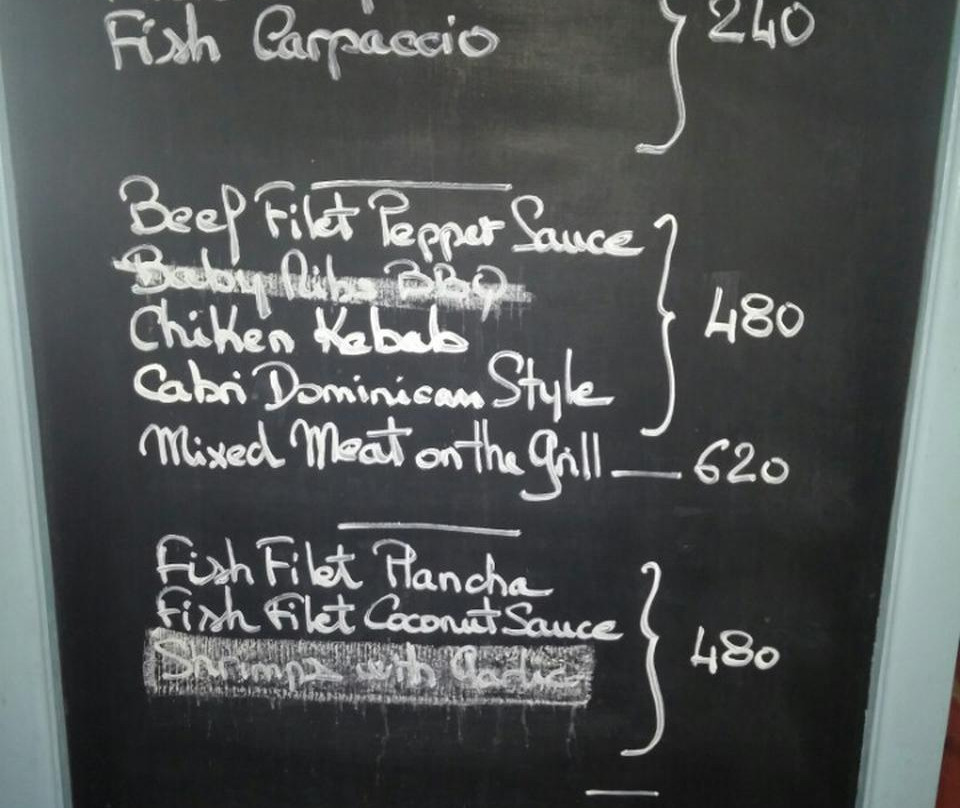 Fish Carpaccio } 240
Beef Filet Pepper Sauce
Baby Ribs BBQ
Chiken Kebab } 480
Cabri Dominican Style
Mixed Meat on the Grill — 620
Fish Filet Plancha
Fish Filet Coconut Sauce
Shrimps with Garlic } 480